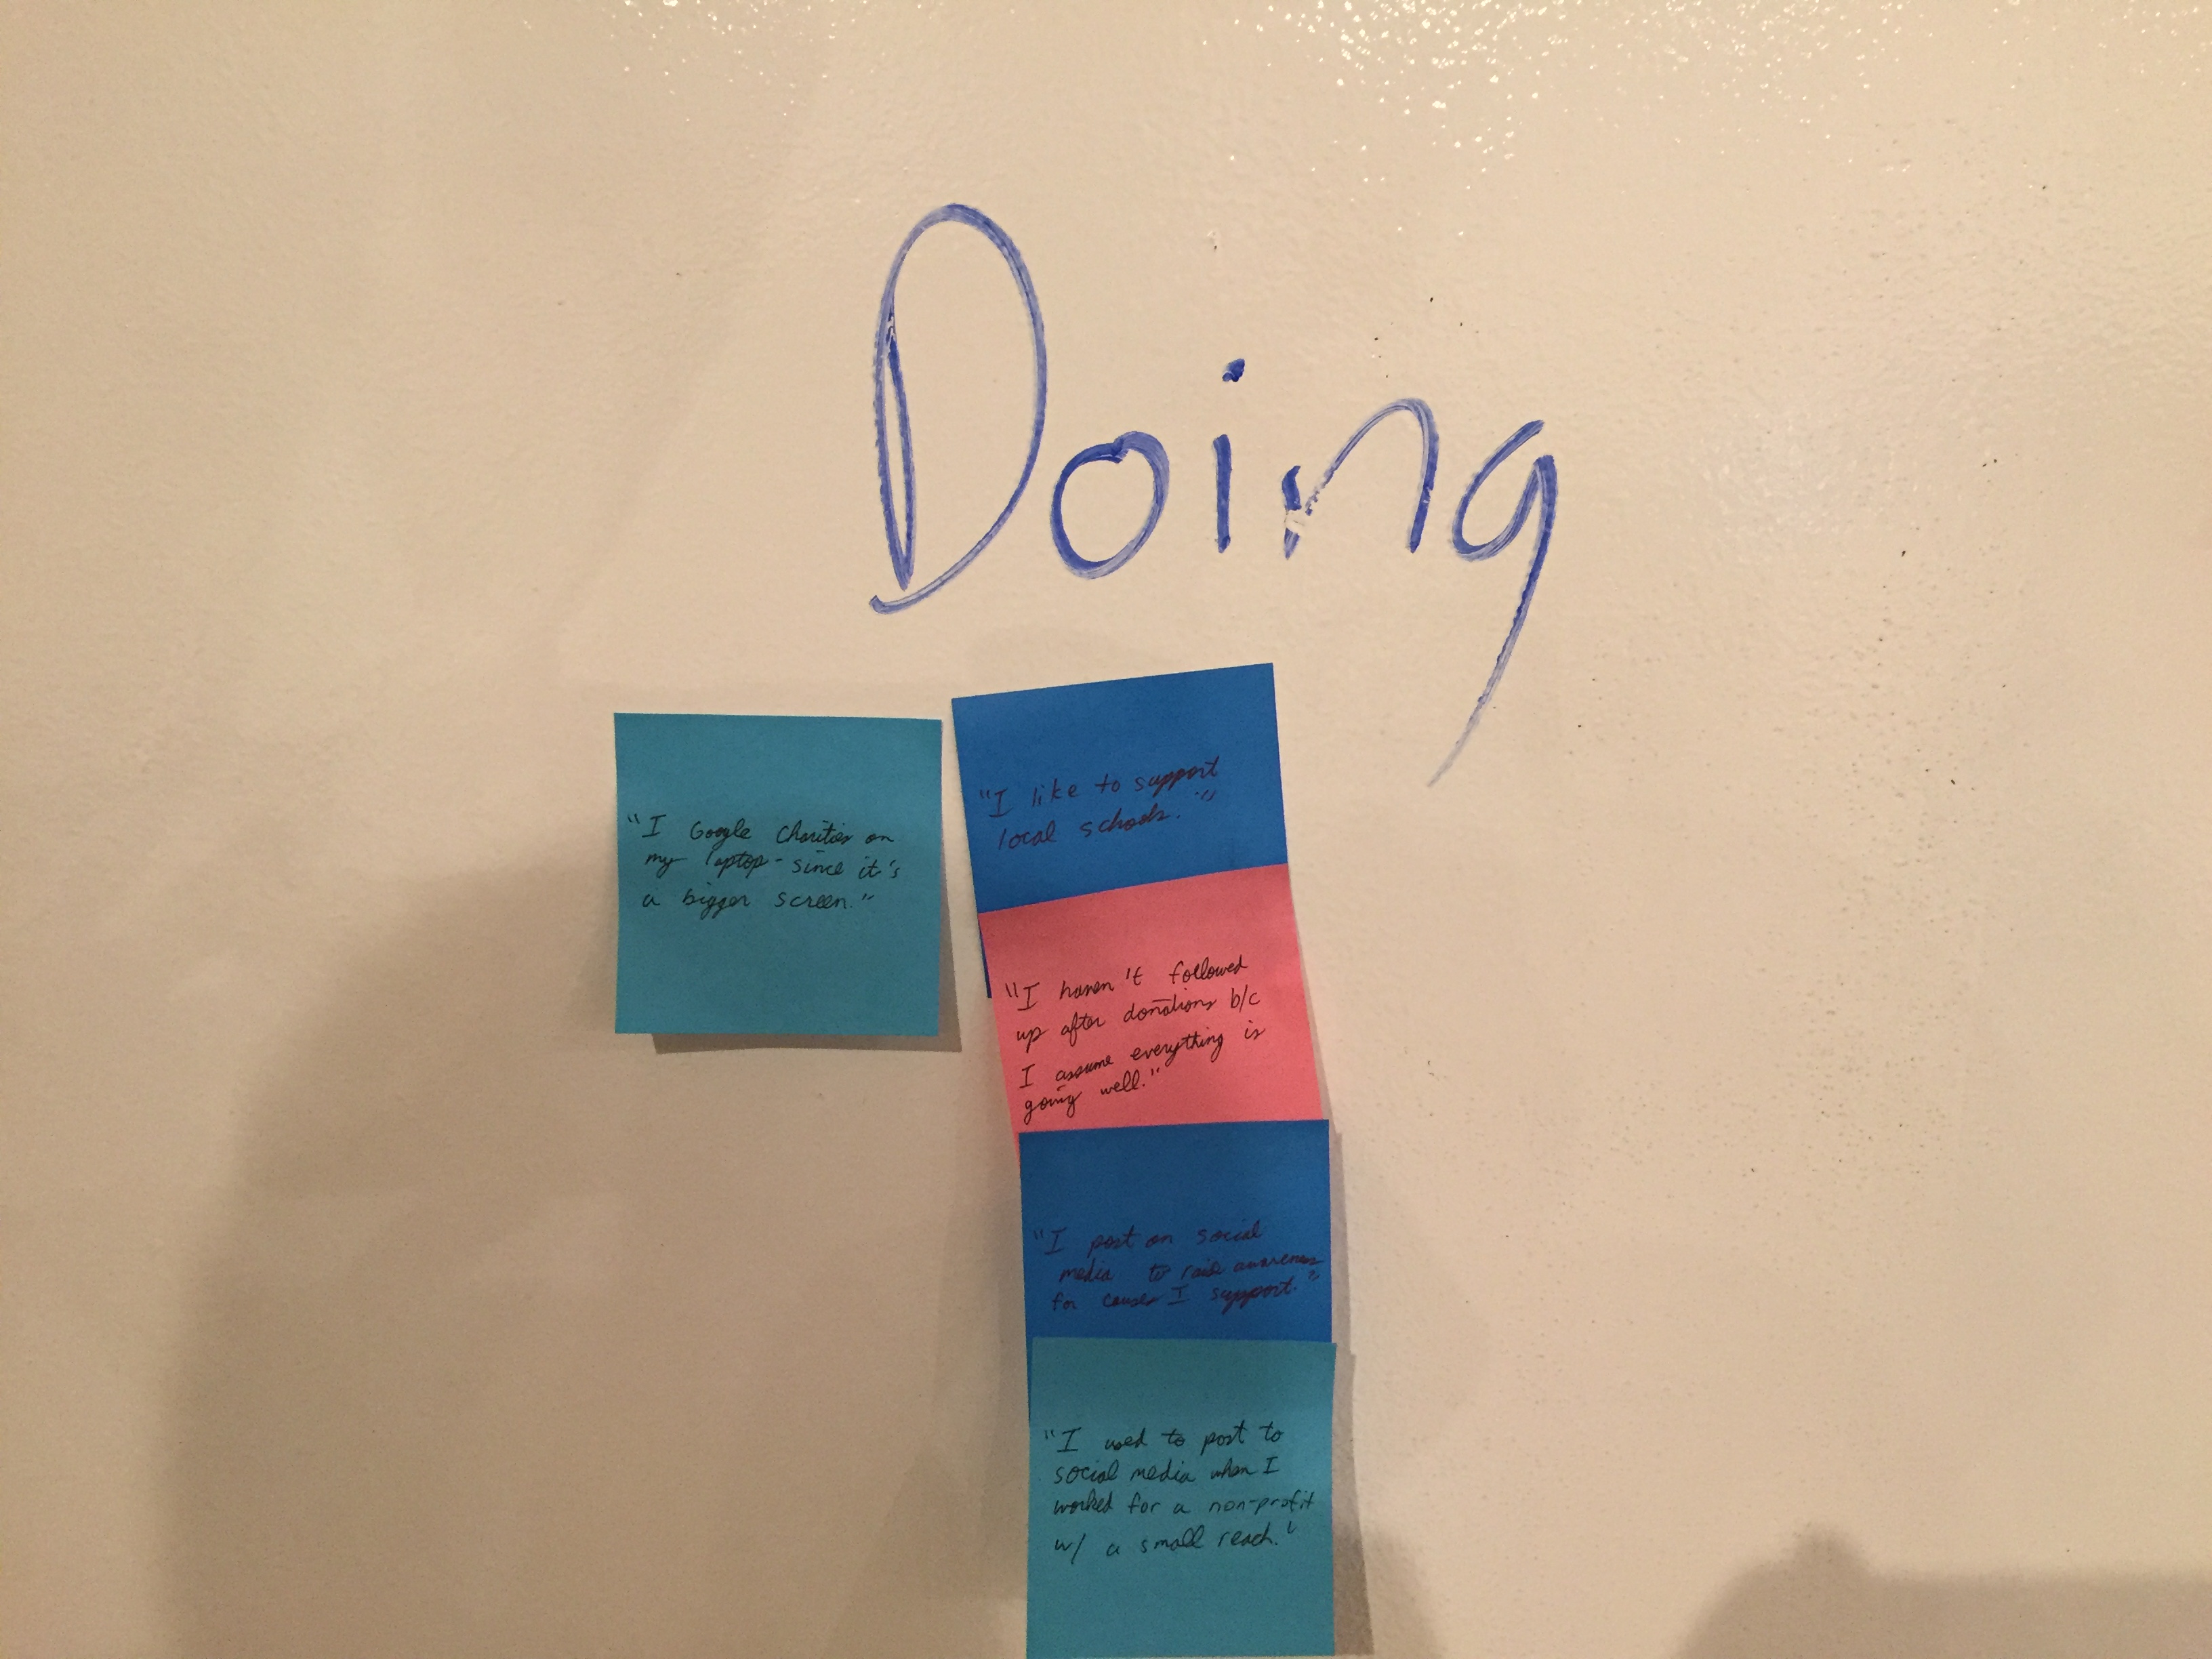 Doing
"I Google Charities on
my laptop - since it's
a bigger screen."
"I like to support
local schools."
"I haven't followed
up after donations b/c
I assume everything is
going well."
"I post on social
media to raise awareness
for causes I support."
"I used to post to
social media when I
worked for a non-profit
w/ a small reach."